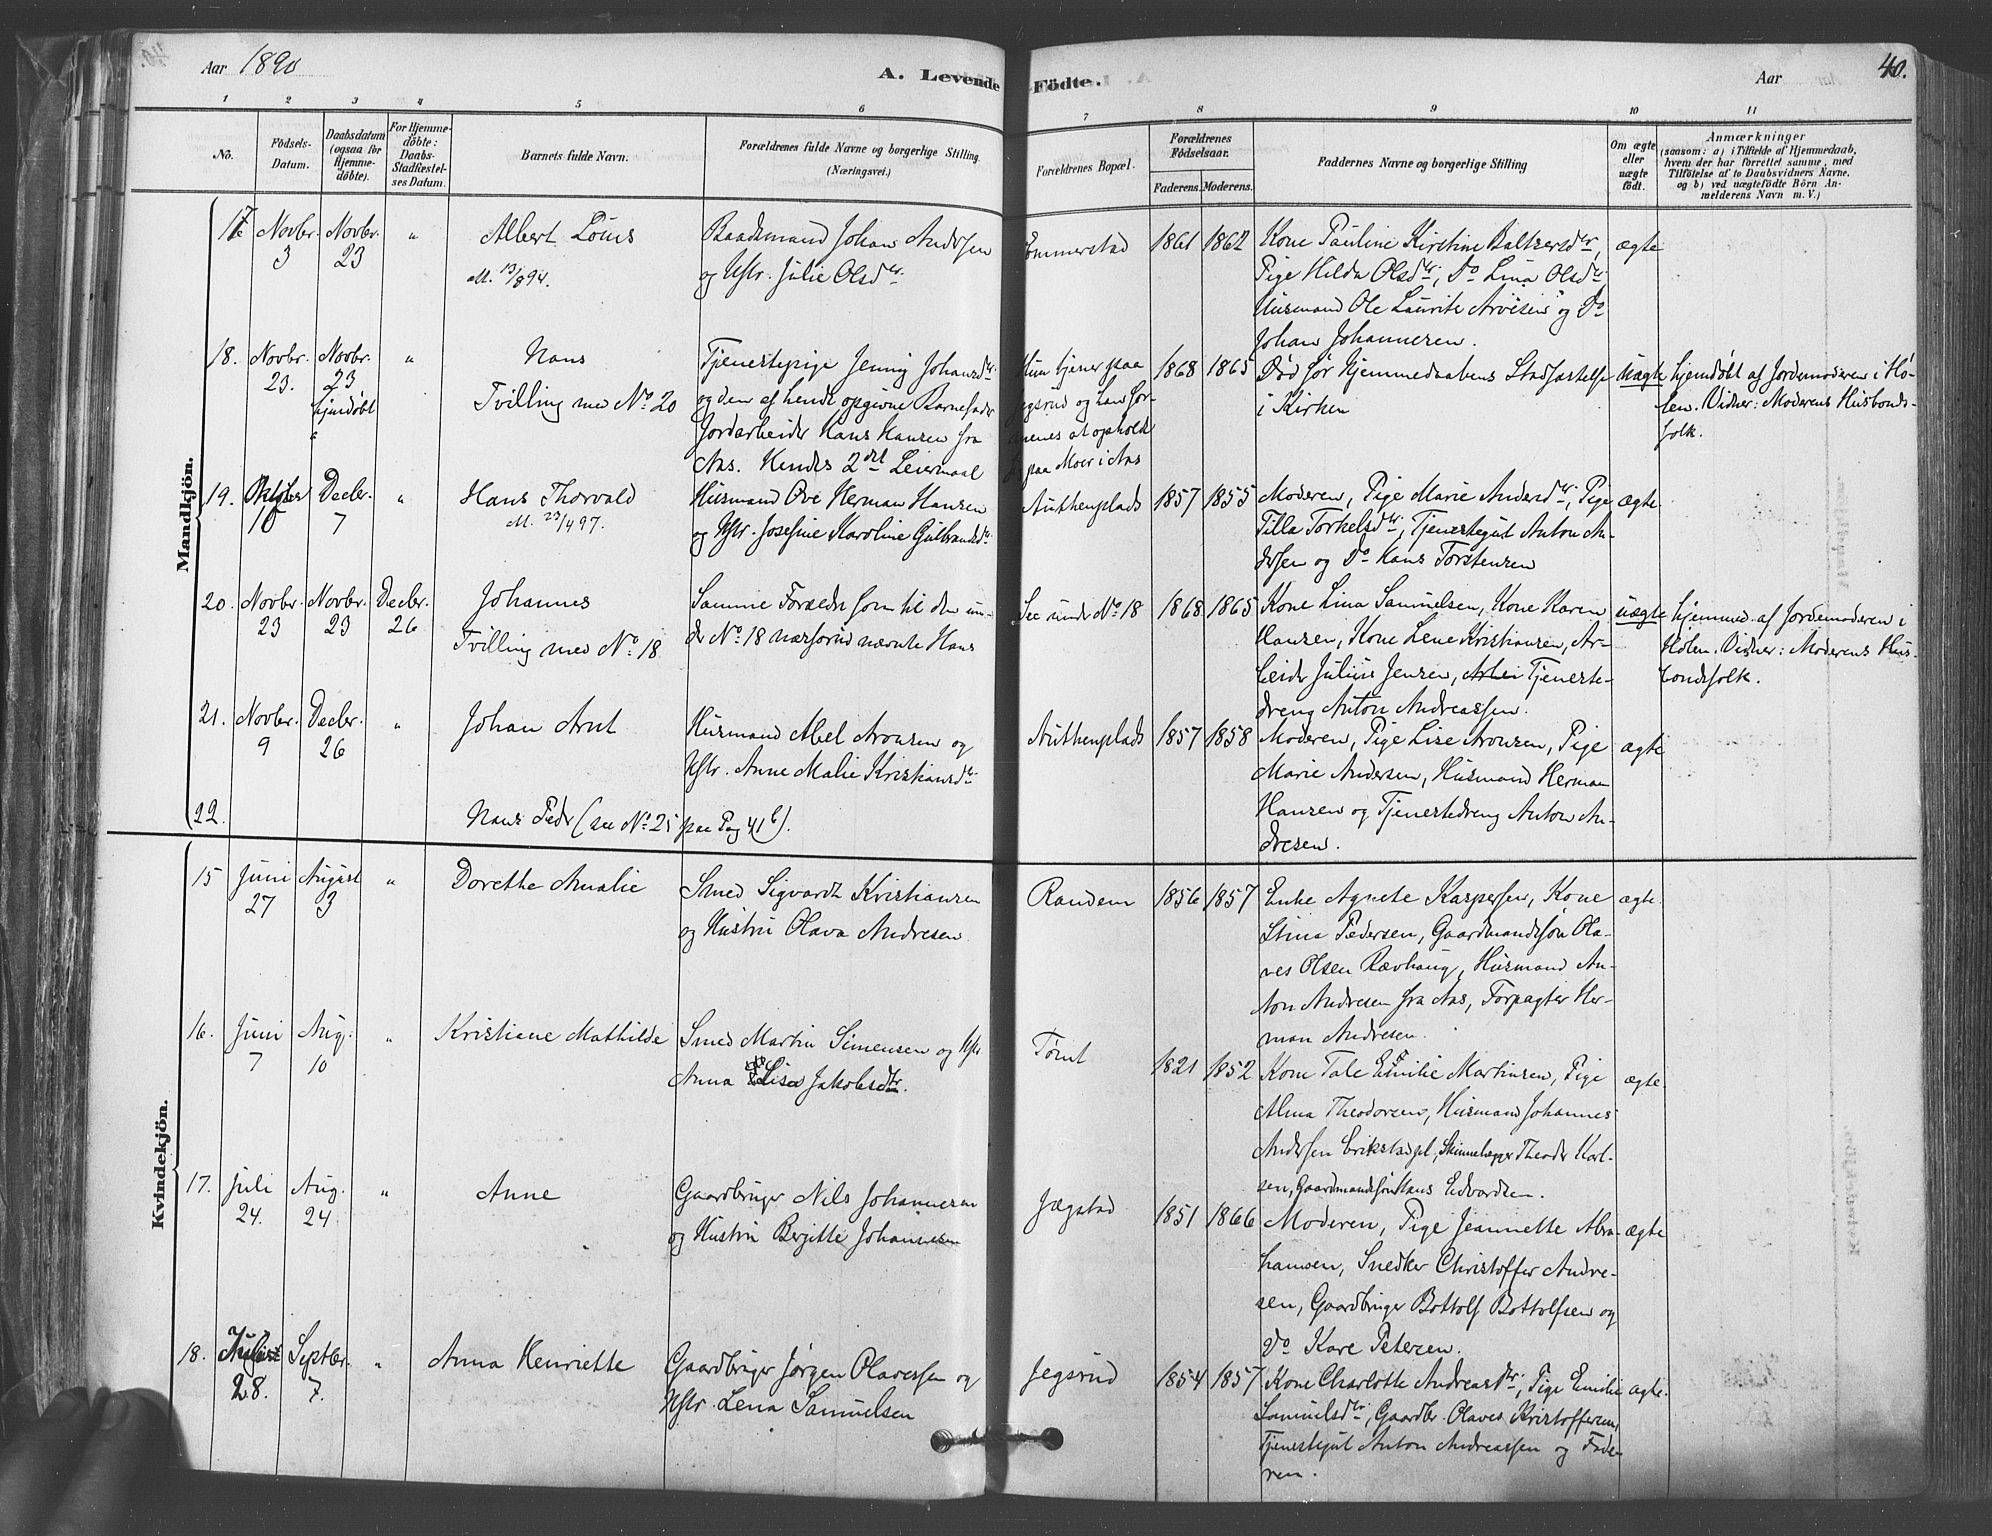 Aar 1890
A. Levende Födte.
Aar
40.
1 2 3 4 5 6 7 8 9 10 11
No.
Födsels-
Datum.
Daabsdatum
(ogsaa for
Hjemme-
döbte).
For Hjemme-
döbte:
Daabs-
Stadfæstel-
ses Datum.
Barnets fulde Navn.
Forældrenes fulde Navne og borgerlige Stilling
(Næringsvei.)
Forældrenes Bopæl.
Forældrenes
Födselsaar.
Faderens. Moderens.
Faddernes Navne og borgerlige Stilling
Om ægte
eller
uægte
födt.
Anmærkninger
(saasom: a) i Tilfælde af Hjemmedaab,
hvem der har forrettet samme, med
Tilföielse af to Daabsvidners Navne.
og b) ved uægtefödte Börn An-
melderens Navn m. V.)
Mandkjön.
17 Novbr. 3 Novbr. 23 "
Albert Louis
M. 13/8 94.
Baadsmand Johan Andersen
og Hstr. Julie Olsdtr.
Emmerstad
1861 1862
Kone Pauline Kirstine Baltzersdtr,
Pige Hilda Olsdtr, Do Lina Olsdtr
Husmand Ole Laurits Arvesen og Do
Johan Johannesen.
ægte
18. Novbr. 23. Novbr. 23 hjemdøbt "
Hans
Tvilling med No 20
Tjenestepige Jenny Johansdtr
og den af hende opgivne Barnefader
Jordarbeider Hans Hansen fra
Aas. Hendes 2det Leiermaal
Hun tjener paa
Jegsrud og han for-
menes at opholde
sig paa Moer i Aas
1868 1865
Død før Hjemmedaabens Stadfæstelse
i Kirken
Uægte
hjemdøbt af Jordemoderen i Hø-
len. Vidner: Moderens Husbonds-
folk.
19. Oktober 10 Decbr. 7 "
Hans Thorvald
M. 23/4 97.
Husmand Ove Herman Hansen
og Hstr. Josefine Karoline Gulbrandsdtr
Authenplads
1857 1855
Moderen, Pige Marie Andersdtr, Pige
Tilla Torkelsdtr, Tjenestegut Anton An-
dersen og Do Hans Torstensen
ægte
20. Novbr. 23 Novbr. 23 Decbr. 26
Johannes
Tvilling med No 18
Samme Forældre som til den un-
der No 18 næsforud nævnte Hans
See under No 18
1868 1865
Kone Lina Samuelsen, Kone Karen
Hansen, Kone Lene Kristiansen, Ar-
beider Julius Jensen, Arbei Tjeneste-
dreng Anton Andreassen.
uægte
hjemmed. af Jordemoderen i
Hølen. Vidner: Moderens Hus-
bondsfolk.
21. Novbr. 9 Decbr. 26 "
Johan Arnt
Husmand Abel Aronsen og
Hstr. Anne Malie Kristiansdtr
Authenplads
1857 1858
Moderen, Pige Lise Aronsen, Pige
Marie Andersen, Husmand Herman
Hansen og Tjenestedreng Anton An-
dresen.
ægte
22.
Hans Pedr (see No 25 paa Pag 41b).
Kvindekjön.
15 Juni 27 August 3 "
Dorethe Amalie
Smed Sigvardt Kristiansen
og Hustru Olava Andresen
Randem
1856 1857
Enke Agnete Kaspersen, Kone
Stina Pedersen, Gaardmandssøn Ola-
ves Olsen Rævhaug, Husmand An-
ton Andresen fra Aas, Forpagter Her-
man Andresen.
ægte.
16. Juni 7 Aug. 10 "
Kristiane Mathilde
Smed Martin Simensen og Hstr
Anna Elisa Jakobsdtr.
Tømt
1821 1852
Kone Tale Emilie Martinsen, Pige
Alma Theodorsen, Husmand Johannes
Andersen Erikstadpl, Skinnelægger Theodor Karl-
sen, Gaardmandssøn Hans Edvardsen.
ægte.
17. Juli 24. Aug. 24 "
Anne
Gaardbruger Nils Johannesen
og Hustru Bergitte Johannesen
Jægstad
1851 1866
Moderen, Pige Jeannette Abra-
hamsen, Snedker Christoffer Andre-
sen, Gaardbruger Bottolf Bottolfsen og
Do Kare Petersen.
ægte
18. 28. Septbr. 7. "
Anna Henriette
Gaardbruger Jørgen Olavessen og
Hstr. Lena Samuelsen
Jegsrud
1854 1857
Kone Charlotte Andreasdtr, Pige Emilie
Samuelsdtr, Gaardbr. Olaves Kristoffersen,
Tjenestegut Anton Andreassen og Fade-
ren.
ægte.